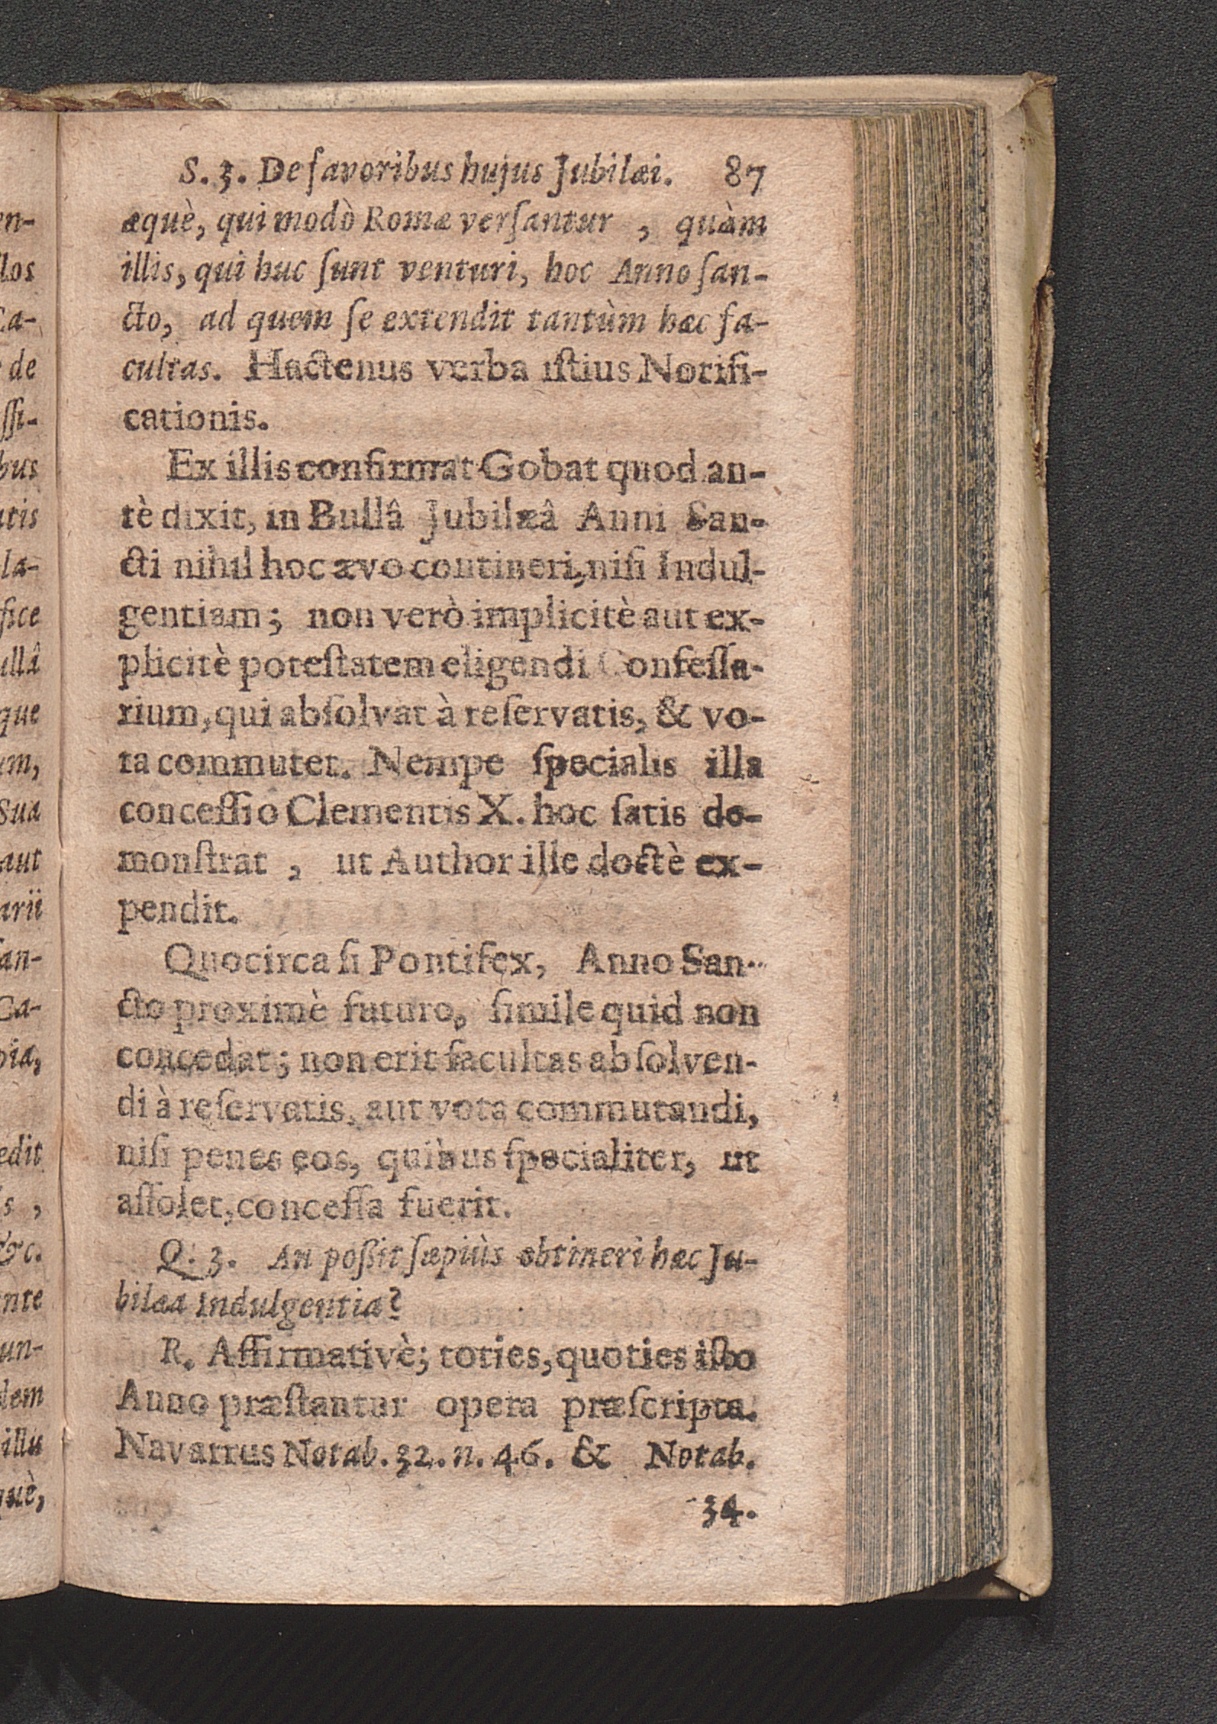 S. 3. De favoribus hujus Jubilæi. 87
æquè, qui modò Romæ verſantur, quàm
illis, qui huc ſunt venturi, hoc Anno ſan-
cto, ad quem ſe extendit tantùm hæc fa-
cultas. Hactenus verba iſtius Notifi-
cationis.
Ex illis confirmat Gobat quod an-
tè dixit, in Bullâ Jubilæâ Anni San-
cti nihil hoc ævo contineri, niſi Indul-
gentiam; non verò implicitè aut ex-
plicitè poteſtatem eligendi Confeſſa-
rium, qui abſolvat à reſervatis, & vo-
ta commutet. Nempe ſpecialis illa
conceſſio Clementis X. hoc ſatis de-
monſtrat, ut Author ille doctè ex-
pendit.
Quocirca ſi Pontifex, Anno San-
cto proximè futuro, ſimile quid non
concedat; non erit facultas abſolven-
di à reſervatis, aut vota commutandi,
niſi penes eos, quibus ſpecialiter, ut
aſſolet, conceſſa fuerit.
Q. 3. An poßit ſæpiùs obtineri hæc Ju-
bilæa Indulgentia?
R. Affirmativè; toties, quoties iſto
Anno præſtantur opera præſcripta.
Navarrus Notab. 32. n. 46. & Notab.
34.
en-
llos
Ca-
de
ſſi-
bus
atis
la-
fice
ullâ
que
um,
Sua
aut
arii
ſan-
Ca-
pia,
edit
s,
&c.
nte
un-
dem
illu
què,